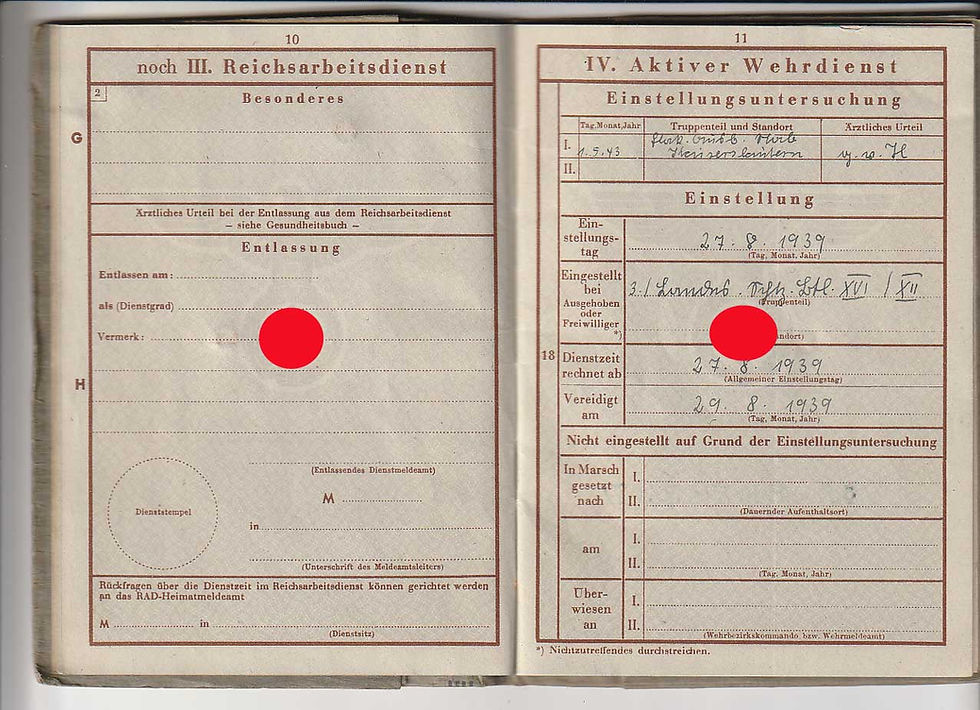 10
noch III. Reichsarbeitsdienst
2
Besonderes
G
Ärztliches Urteil bei der Entlassung aus dem Reichsarbeitsdienst
– siehe Gesundheitsbuch –
Entlassung
Entlassen am:
als (Dienstgrad)
Vermerk:
H
(Entlassendes Dienstmeldeamt)
M
Dienststempel
in
(Unterschrift des Meldeamtsleiters)
Rückfragen über die Dienstzeit im Reichsarbeitsdienst können gerichtet werden
an das RAD-Heimatmeldeamt
M in
(Dienstsitz)
11
IV. Aktiver Wehrdienst
Einstellungsuntersuchung
Tag, Monat, Jahr Truppenteil und Standort Ärztliches Urteil
I. 1.5.43 Kaiserslautern g. v. H
II.
Einstellung
Ein-
stellungs-
tag
27. 8. 1939
(Tag, Monat, Jahr)
Eingestellt
bei
Ausgehoben
oder
Freiwilliger
*)
3./ Landes. Schtz. Btl. XVI / XII
(Truppenteil)
18
Dienstzeit
rechnet ab
27. 8. 1939
(Allgemeiner Einstellungstag)
Vereidigt
am
29. 8. 1939
(Tag, Monat, Jahr)
Nicht eingestellt auf Grund der Einstellungsuntersuchung
In Marsch
gesetzt
nach
I.
II.
(Dauernder Aufenthaltsort)
am
I.
II.
(Tag, Monat, Jahr)
Über-
wiesen
an
I.
II.
(Wehrbezirkskommando bzw. Wehrmeldeamt)
*) Nichtzutreffendes durchstreichen.